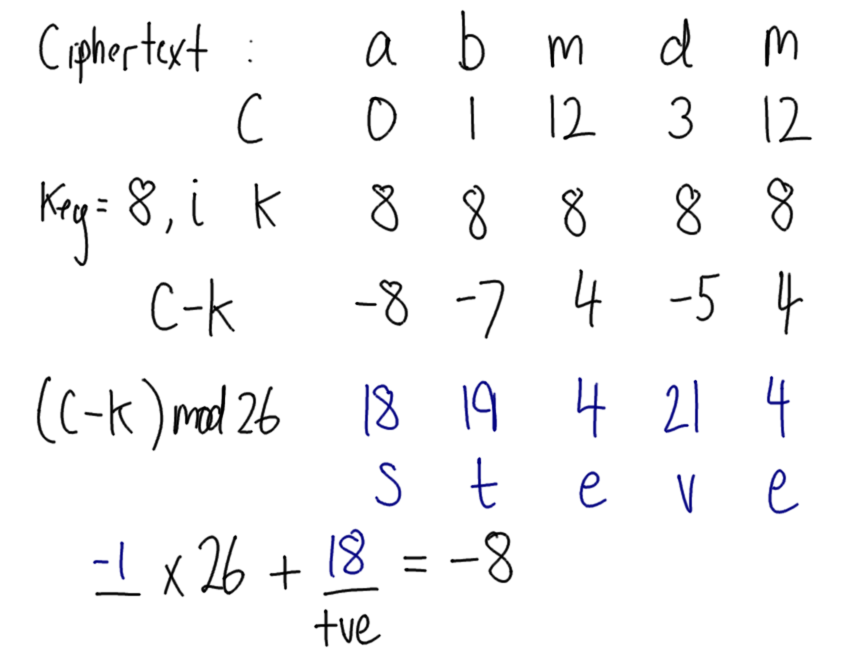 Ciphertext : a b m d m
C 0 1 12 3 12
Key = 8, i k 8 8 8 8 8
C-k -8 -7 4 -5 4
(C-k) mod 26 18 19 4 21 4
s t e v e
-1 x 26 + 18 = -8
+ve